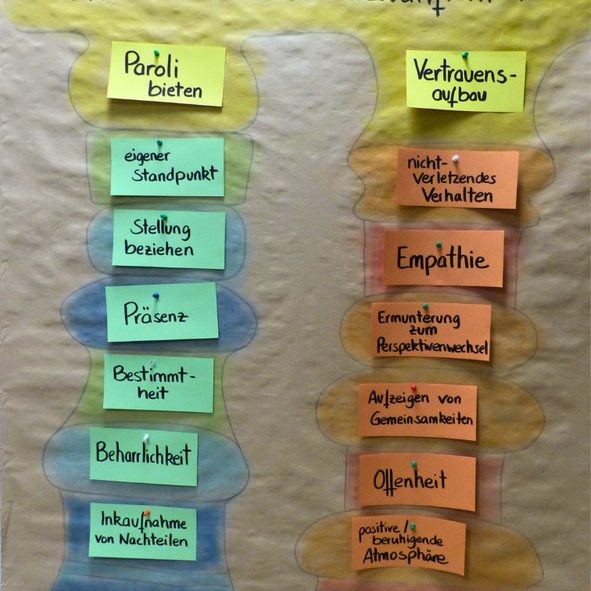 Paroli
bieten
eigener
Standpunkt
Stellung
beziehen
Präsenz
Bestimmt-
heit
Beharrlichkeit
Inkaufnahme
von Nachteilen
Vertrauens-
aufbau
nicht-
verletzendes
Verhalten
Empathie
Ermunterung
zum
Perspektivenwechsel
Aufzeigen von
Gemeinsamkeiten
Offenheit
positive/
beruhigende
Atmosphäre